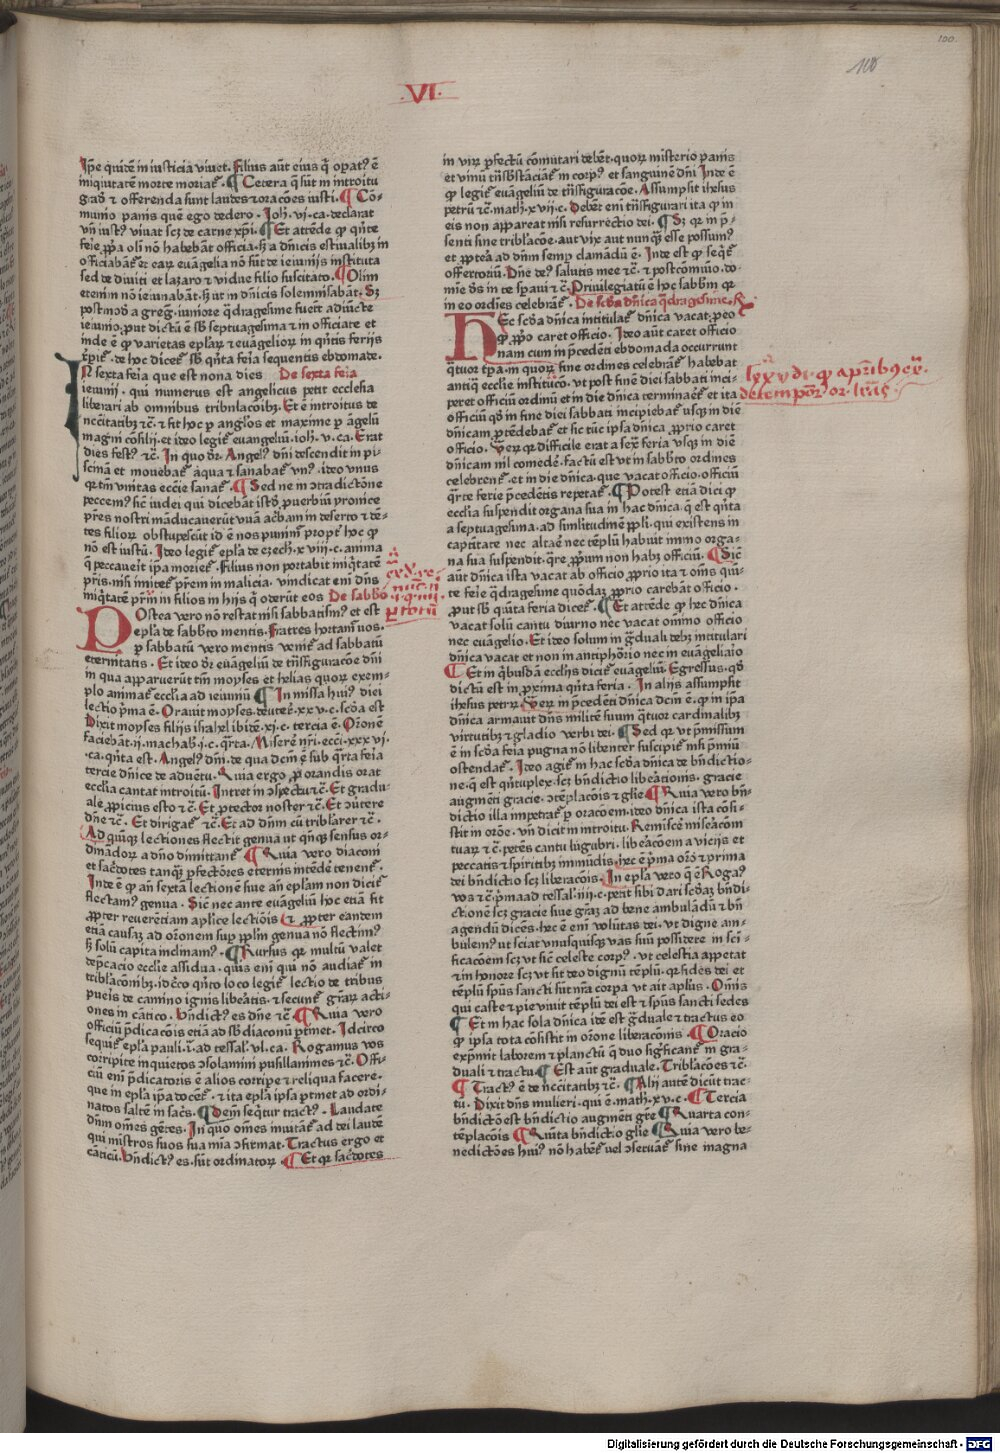 100.
100
.VI.
Ip̄e quidē in iusticia viuet. Filius aūt eius q̄ opat᷒ ē
iniquitatem morte moriat᷒. ¶ Cetera q̄ sūt in introitu
grad᷒ ⁊ offerenda sunt laudes ⁊ oracōes iusti. ¶ Cō-
munio panis quē ego dedero. Joh. vi. ca. declarat
vn̄ iust᷒ viuat scz de carne xp̄i. ¶ Et attēde q̄ qn̄te
feīe p̄pa oli nō habebāt officia. s̄ a dn̄icis estiualibz in
officiabāt᷒ et eaꝝ euāgelia nō sūt de ieiunijs instituta
sed de diuiti et lazaro ⁊ vidue filio suscitato. ¶ Olim
etenim nō ieiunabāt. s̄ ut in dn̄icis solemnisabāt. Sz
postmodū a greg. iuniore q̄dragesima fuerit adiūcte
ieiunio. put dictū ē sb̄ septuagesima ⁊ in officiate et
inde ē q̄ varietas eplaꝝ ⁊ euāgelioꝝ in qn̄tis ferijs
de hoc dicet᷒ sb̄ qn̄ta feīa sequentis ebdomade.
IN sexta feīa que est nona dies De sexta feīa
ieiunij. qui numerus est angelicus petit ecclesia
liberari ab omnibus tribulacoibz. Et ē introitus de
nc̄citatibz ⁊c̄. ⁊ fit hoc p̄ anglos et maxime p̄ āgelū
magni consilij. et ideo legit᷒ euangeliū. ioh. v. ca. Erat
dies fest᷒ ⁊c̄. In quo dr̄. Angel᷒ dn̄i descendit in pi-
scinā et mouebat᷒ aqua ⁊ sanabat᷒ vn᷒. ideo vnus
qr tm̄ vnitas eccīe sanat᷒. ¶ Sed ne in ↄtradictōne
peccem᷒ sic̄ iudei qui dicebāt istd̄ puerbiū ironice
pr̄es nostri māducauerūt vuā acb̄am in deserto ⁊ dē-
tes filioꝝ obstupescūt id ē nos punim̄ propt᷒ hoc q̄
nō est iustū. Ideo legit᷒ epl̄a de ezech. xviij. c. anima
q̄ peccauerit ip̄a moriet᷒. Filius non portabit iniq̄tatē
pris. nisi imitet᷒ pr̄em in malicia. vindicat eni dn̄s
iniq̄tatē pr̄m in filios in hijs q̄ oderūt eos De sabbō
POstea vero nō restat nisi sabbatism᷒ et est
epl̄a de sabb̄to mentis. Fratres hortam̄ vos.
p̄ sabbatū vero mentis venit᷒ ad sabbatū
eternitatis. Et ideo dr̄ euāgeliū de tn̄sfiguracōe dn̄i
in qua apparuerūt tm̄ moyses et helias quoꝝ exem-
plo animat᷒ ecclīa ad ieiuniū ¶ In missa hui᷒ diei
lectio p̄ma ē. Orauit moyses. deuter. xxv. c. scd̄a est
Dixit moyses filijs israhel ibidē. xi. c. tercia ē. Orōnē
faciebāt. ij. machab. j. c. q̄rta. Miserē nr̄i. ecci. xxxvi.
.ca. qn̄ta est. Angel᷒ dn̄i. de qua dcm̄ ē sub q̄rta feīa
tercie dn̄ice de aduētu. Quia ergo p̄ orandis orat
ecclīa cantat introitū. Intret in ↄspectu ⁊c̄. Et gradu-
ale ꝓpicius esto ⁊c̄. Et ꝓtector noster ⁊c̄. Et ↄūtere
dn̄e ⁊c̄. Et dirigat᷒ ⁊c̄. Et ad dn̄m cū tribl̄arer ⁊c̄.
¶ Ad quīqz lectiones flectit genua ut qn̄qz sensus or-
dinādoꝝ a dn̄o dimittant᷒ ¶ Quia vero diaconi
et sac̄dotes tanq̄z pfectiores eternis intēdē tenent᷒.
Inde ē q̄ an̄ sexta lectionē siue an̄ epl̄am non dicit᷒
flectam᷒ genua. Sic̄ nec ante euāgeliū hoc etiā fit
ꝓpter reuerētiam aplīce lectiōis ¶ ꝓpter eandem
etiā causaz ad orōnem sup pplm̄ genua nō flectim᷒
s̄ solū capita inclinam᷒. ¶ Rursus qr multū valet
dep̄cacio ecclīe assidua. quis eni qui nō audiat᷒ in
tribl̄acōnibz. idc̄co qn̄to loco legit᷒ lectio de tribus
pueris de camino ignis liberātis. ⁊ secunt᷒ grāꝝ acti-
ones in cātico. Bn̄dict᷒ es dn̄e ⁊c̄ ¶ Quia vero
officiū p̄dicacōis etiā ad sb̄diaconū ptinet. Idcirco
sequit᷒ epl̄a pauli. i. ad tessal. vl. ca. Rogamus vos
corripite inquietos ↄsolamini pusillanimes ⁊c̄. Offi-
ciū eni p̄dicatoris ē alios corripe ⁊ reliqua facere.
que in epl̄a ip̄a docet᷒ ⁊ ita epl̄a ipsa ptinet ad ordi-
natos saltē in sac̄s. ¶ Deīn seq̄tur tract᷒. Laudate
dn̄m om̄es gētes. In quo om̄es inuitāt᷒ ad dei laudē
qui mīstros suos sua mīa ↄfirmat. Tractus ergo et
cāticū. Bn̄dict᷒ es. sūt ordinatoꝝ. ¶ Et qr sac̄dotes
in viꝝ pfectū cōmutari debēt. quoꝝ misterio panis
et vinū trn̄sbstāciāt᷒ in corp᷒ et sanguinē dn̄i Inde ē
q̄ legit᷒ euāgeliū de trn̄sfiguracōe. Assumpsit ihesus
petrū ⁊c̄ math. xvij. c. Debēt eni trn̄sfigurari ita q̄ in
eis non appareat nisi resurrectio dei. ¶ Sz qr in p̄-
senti sine tribl̄acōe. aut vix aut nunq̄z esse possum᷒
et ꝓptea ad dn̄m semp clamādū ē. Inde est q̄ seqt᷒
offertoriū. Dn̄e de᷒ salutis mee ⁊c̄. ⁊ postcomūio. do-
mīe ds̄ in te spaui ⁊c̄. Priuilegiatū ē hoc sabb̄m qr
in eo ordīes celebrāt᷒. De scd̄a dn̄ica q̄dragesime. R
HEc scd̄a dn̄ica intitulat᷒ dn̄ica vacat. p̄ eo
q̄ ꝓpo caret officio. Ideo aūt caret officio
nam cum in p̄cedēti ebdomada occurrunt
q̄tuor tpa. in quoꝝ fine ordines celebrāt᷒ habebat
antiq̄ ecclīe institucō. vt post finē diei sabbati inci-
peret officiū ordinū et in die dn̄ica terminaet᷒ et ita
officiū qd̄ in fine diei sabbati incipiebat᷒ vsqz in diē
dn̄icam ptēdebat᷒ et sic tūc ipsa dn̄ica ꝓprio caret
officio. Veꝝ qr difficile erat a sex̄t feria vsqz in diē
dn̄icam nil comedē. factū est vt in sabb̄to ordines
celebrent᷒. et in die dn̄ica. que vacat officio. officiū
q̄rte ferie p̄cedētis repetat᷒. ¶ Potest etiā dici q̄
ecclīa suspendit organa sua in hac dn̄ica. q̄ est qn̄ta
a septuagesima. ad similitudinē ppl̄i. qui existens in
captiītate nec altaē nec tēplū habuit immo orga-
na sua suspendit. q̄re ꝓpum non habz officiū. ¶ Sic̄
aūt dn̄ica ista vacat ab officio ꝓprio ita ⁊ om̄s qui-
te feīe q̄dragesime quōdaz ꝓprio carebāt officio.
put sb̄ quīta feria dicet᷒. ¶ Et attēde q̄ hec dn̄ica
vacat solū cantu diurno nec vacat omīno officio
nec euāgelio. Et ideo solum in grāduali debz intitulari
dn̄ica vacat et non in antiphōrio nec in euāgeliaīo
¶ Et in q̄busdā ecclijs dicit᷒ euāgeliū. Egressus. qd̄
dictū est in pxima qn̄ta feria. In alijs assumpsit
ihesus petrꝝ. Veꝝ in p̄cedēti dn̄ica dcm̄ ē. q̄ in ip̄a
dn̄ica armauit dn̄s militē suum q̄tuor cardinalibz
virtutibz ⁊ gladio verbi dei. ¶ Sed qr vt p̄missum
ē in scd̄a feīa pugna nō libenter suscipit᷒ nisi p̄miū
ostendat᷒. Ideo agit᷒ in hac scd̄a dn̄ica de bn̄dictio-
ne. q̄ est qn̄tuplex. scz bn̄dictio liberacionis. gracie
augmēti gracie. ↄtēplacōis ⁊ glīe ¶ Quia vero bn̄-
dictio illa impetrat᷒ p̄ oracōem. ideo dn̄ica ista cōsi-
stit in orōe. vn̄ dicit in introitu. Reminiscē miseacōm
tuaꝝ ⁊c̄. petēs cantu lugubri. liberacōem a vicijs et
peccatis ⁊ spiritibz immūdis. hec ē p̄ma orō ⁊ prima
dei bn̄dictio scz liberacōis. In epl̄a vero q̄ ē Roga᷒
vos ⁊c̄. p̄ma ad tessal. iiij. c. petit sibi dari scd̄az bn̄di-
ctionē scz gracie siue grāz ad bene ambulādū ⁊ bn̄
agendū dicēs. hec ē eni volūtas dei. vt digne am-
bulem᷒ ut sciat vnusquisqz vas suū possidere in scī-
ficacōem scz vt sic̄ celeste corp᷒. vt celestia appetat
⁊ in honore scz vt sit deo dignū tēplū. qr sidēs dei et
tēplū spūs sancti sūt nr̄a corpa vt ait aplūs. Om̄is
qui caste ⁊ pie viuit tēplū dei est ⁊ spūs sancti sedes
¶ Et in hac sola dn̄ica idē est grāduale ⁊ tractus eo
q̄ ipsa tota cōsistit in orōne liberacōnis. ¶ Oracio
exprimit laborem ⁊ planctū q̄ duo significant᷒ in gra-
duali ⁊ tractu. ¶ Est aut graduale. Tribl̄acōes ⁊c̄.
¶ Tract᷒ ē de nc̄citatibz ⁊c̄. ¶ Alij autē dicūt trac-
tū. Dixit dn̄s mulieri. qui ē. math. xv. c. ¶ Tercia
bn̄dictō est bn̄dictio augmēti gre ¶ Quarta con-
tēplacōis ¶ Quīta bn̄dictio glīe ¶ Quia vero be-
nedictōes hui᷒ nō habent᷒ uel ↄseruāt᷒ sine magna